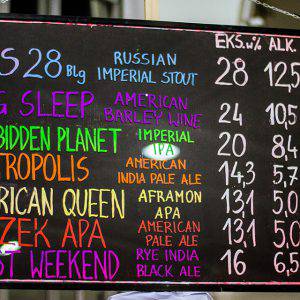 EKS.W% ALK.
S 28 Blg RUSSIAN IMPERIAL STOUT 28 12,5
G SLEEP AMERICAN BARLEY WINE 24 10,5
BIDDEN PLANET IMPERIAL IPA 20 8,4
TROPOLIS AMERICAN INDIA PALE ALE 14,3 5,7
RICAN QUEEN AFRAMON APA 13,1 5,0
ZEK APA AMERICAN PALE ALE 13,1 5,0
ST WEEKEND RYE INDIA BLACK ALE 16 6,5